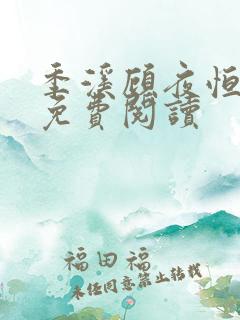 季溪顧夜恒
免費閱讀
福田福
未經同意禁止轉載